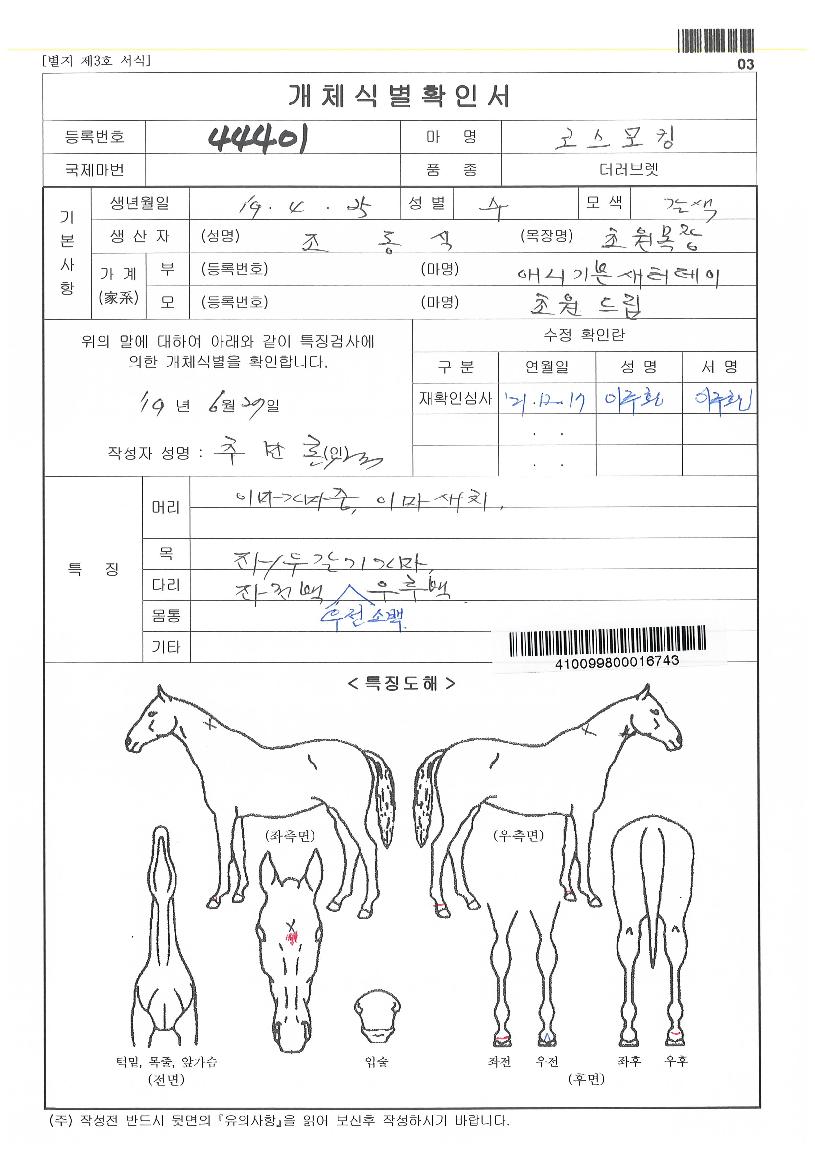 03
[별지 제3호 서식]
개체식별확인서
등록번호 44401 마 명 코스모킹
국제마번 품 종 더러브렛
기본사항
생년월일 19. 4. 25 성별 수 모색 갈색
생 산 자 (성명) 조 동 식 (목장명) 초원목장
가 계 (家系) 부 (등록번호) (마명) 애시기본새터데이
모 (등록번호) (마명) 초원 드림
위의 말에 대하여 아래와 같이 특징검사에
의한 개체식별을 확인합니다.
'19 년 6월 27일
작성자 성명 : (인)
수정 확인란
구 분 연월일 성 명 서 명
재확인심사 '21.12.17 이주환 이주환
. .
. .
특 징
머리 이마가마중, 이마새치.
목 좌/우갈기가마,
다리 좌전백 우후백
몸통 우전소백
기타
410099800016743
< 특징도해 >
(좌측면) (우측면)
턱밑, 목줄, 앞가슴 입술 좌전 우전 좌후 우후
(전면) (후면)
(주) 작성전 반드시 뒷면의 『유의사항』을 읽어 보신후 작성하시기 바랍니다.